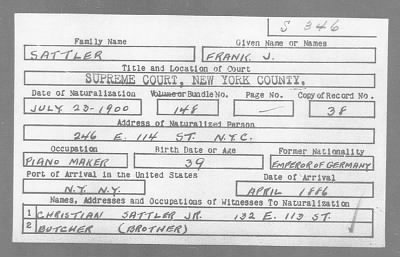 S 346
Family Name Given Name or Names
SATTLER FRANK J.
Title and Location of Court
SUPREME COURT, NEW YORK COUNTY.
Date of Naturalization Volume or Bundle No. Page No. Copy of Record No.
JULY 23-1900 148 38
Address of Naturalized Person
246 E. 114 ST. N.Y.C.
Occupation Birth Date or Age Former Nationality
PIANO MAKER 39 EMPEROR OF GERMANY
Port of Arrival in the United States Date of Arrival
N.Y. N.Y. APRIL 1886
Names, Addresses and Occupations of Witnesses To Naturalization
1 CHRISTIAN SATTLER JR. 132 E. 113 ST.
2 BUTCHER (BROTHER)